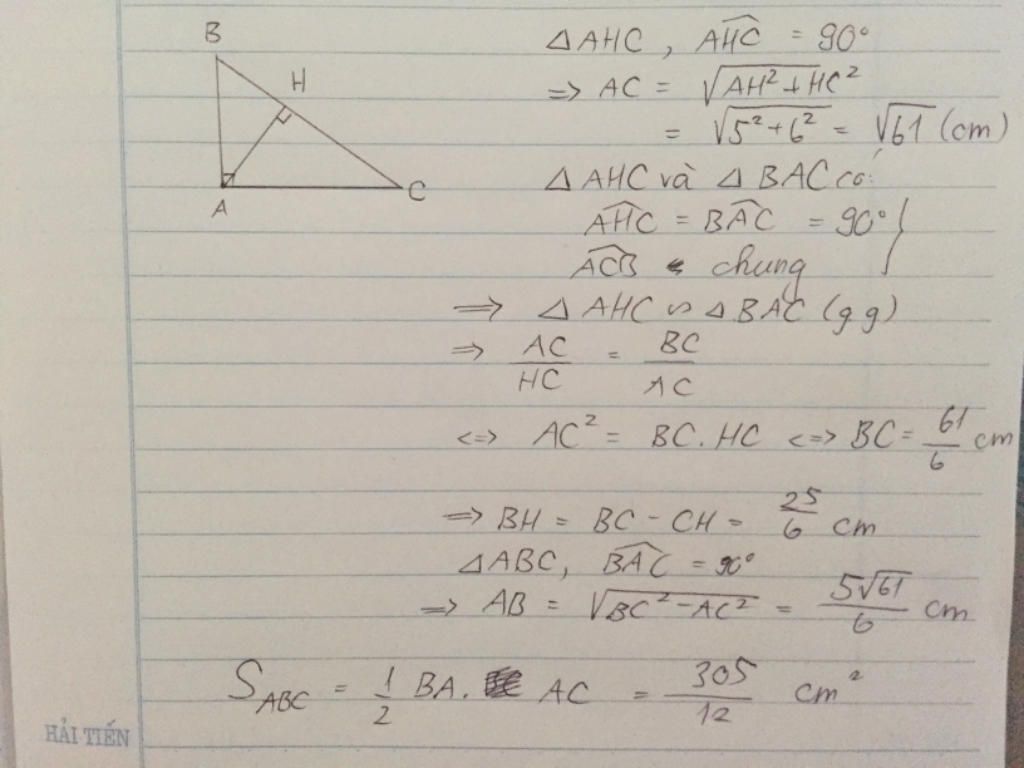 B
H
A
C
△AHC, AHC = 90°
=> AC = √AH² + HC²
= √5² + 6² = √61 (cm)
△AHC và △BAC có:
AHC = BAC = 90° }
ACB chung
=> △AHC ∽ △BAC (g g)
=> AC/HC = BC/AC
<=> AC² = BC.HC <=> BC = 61/6 cm
=> BH = BC - CH = 25/6 cm
△ABC, BAC = 90°
=> AB = √BC² - AC² = 5√61/6 cm
S_ABC = 1/2 BA. AC = 305/12 cm²
HẢI TIẾN